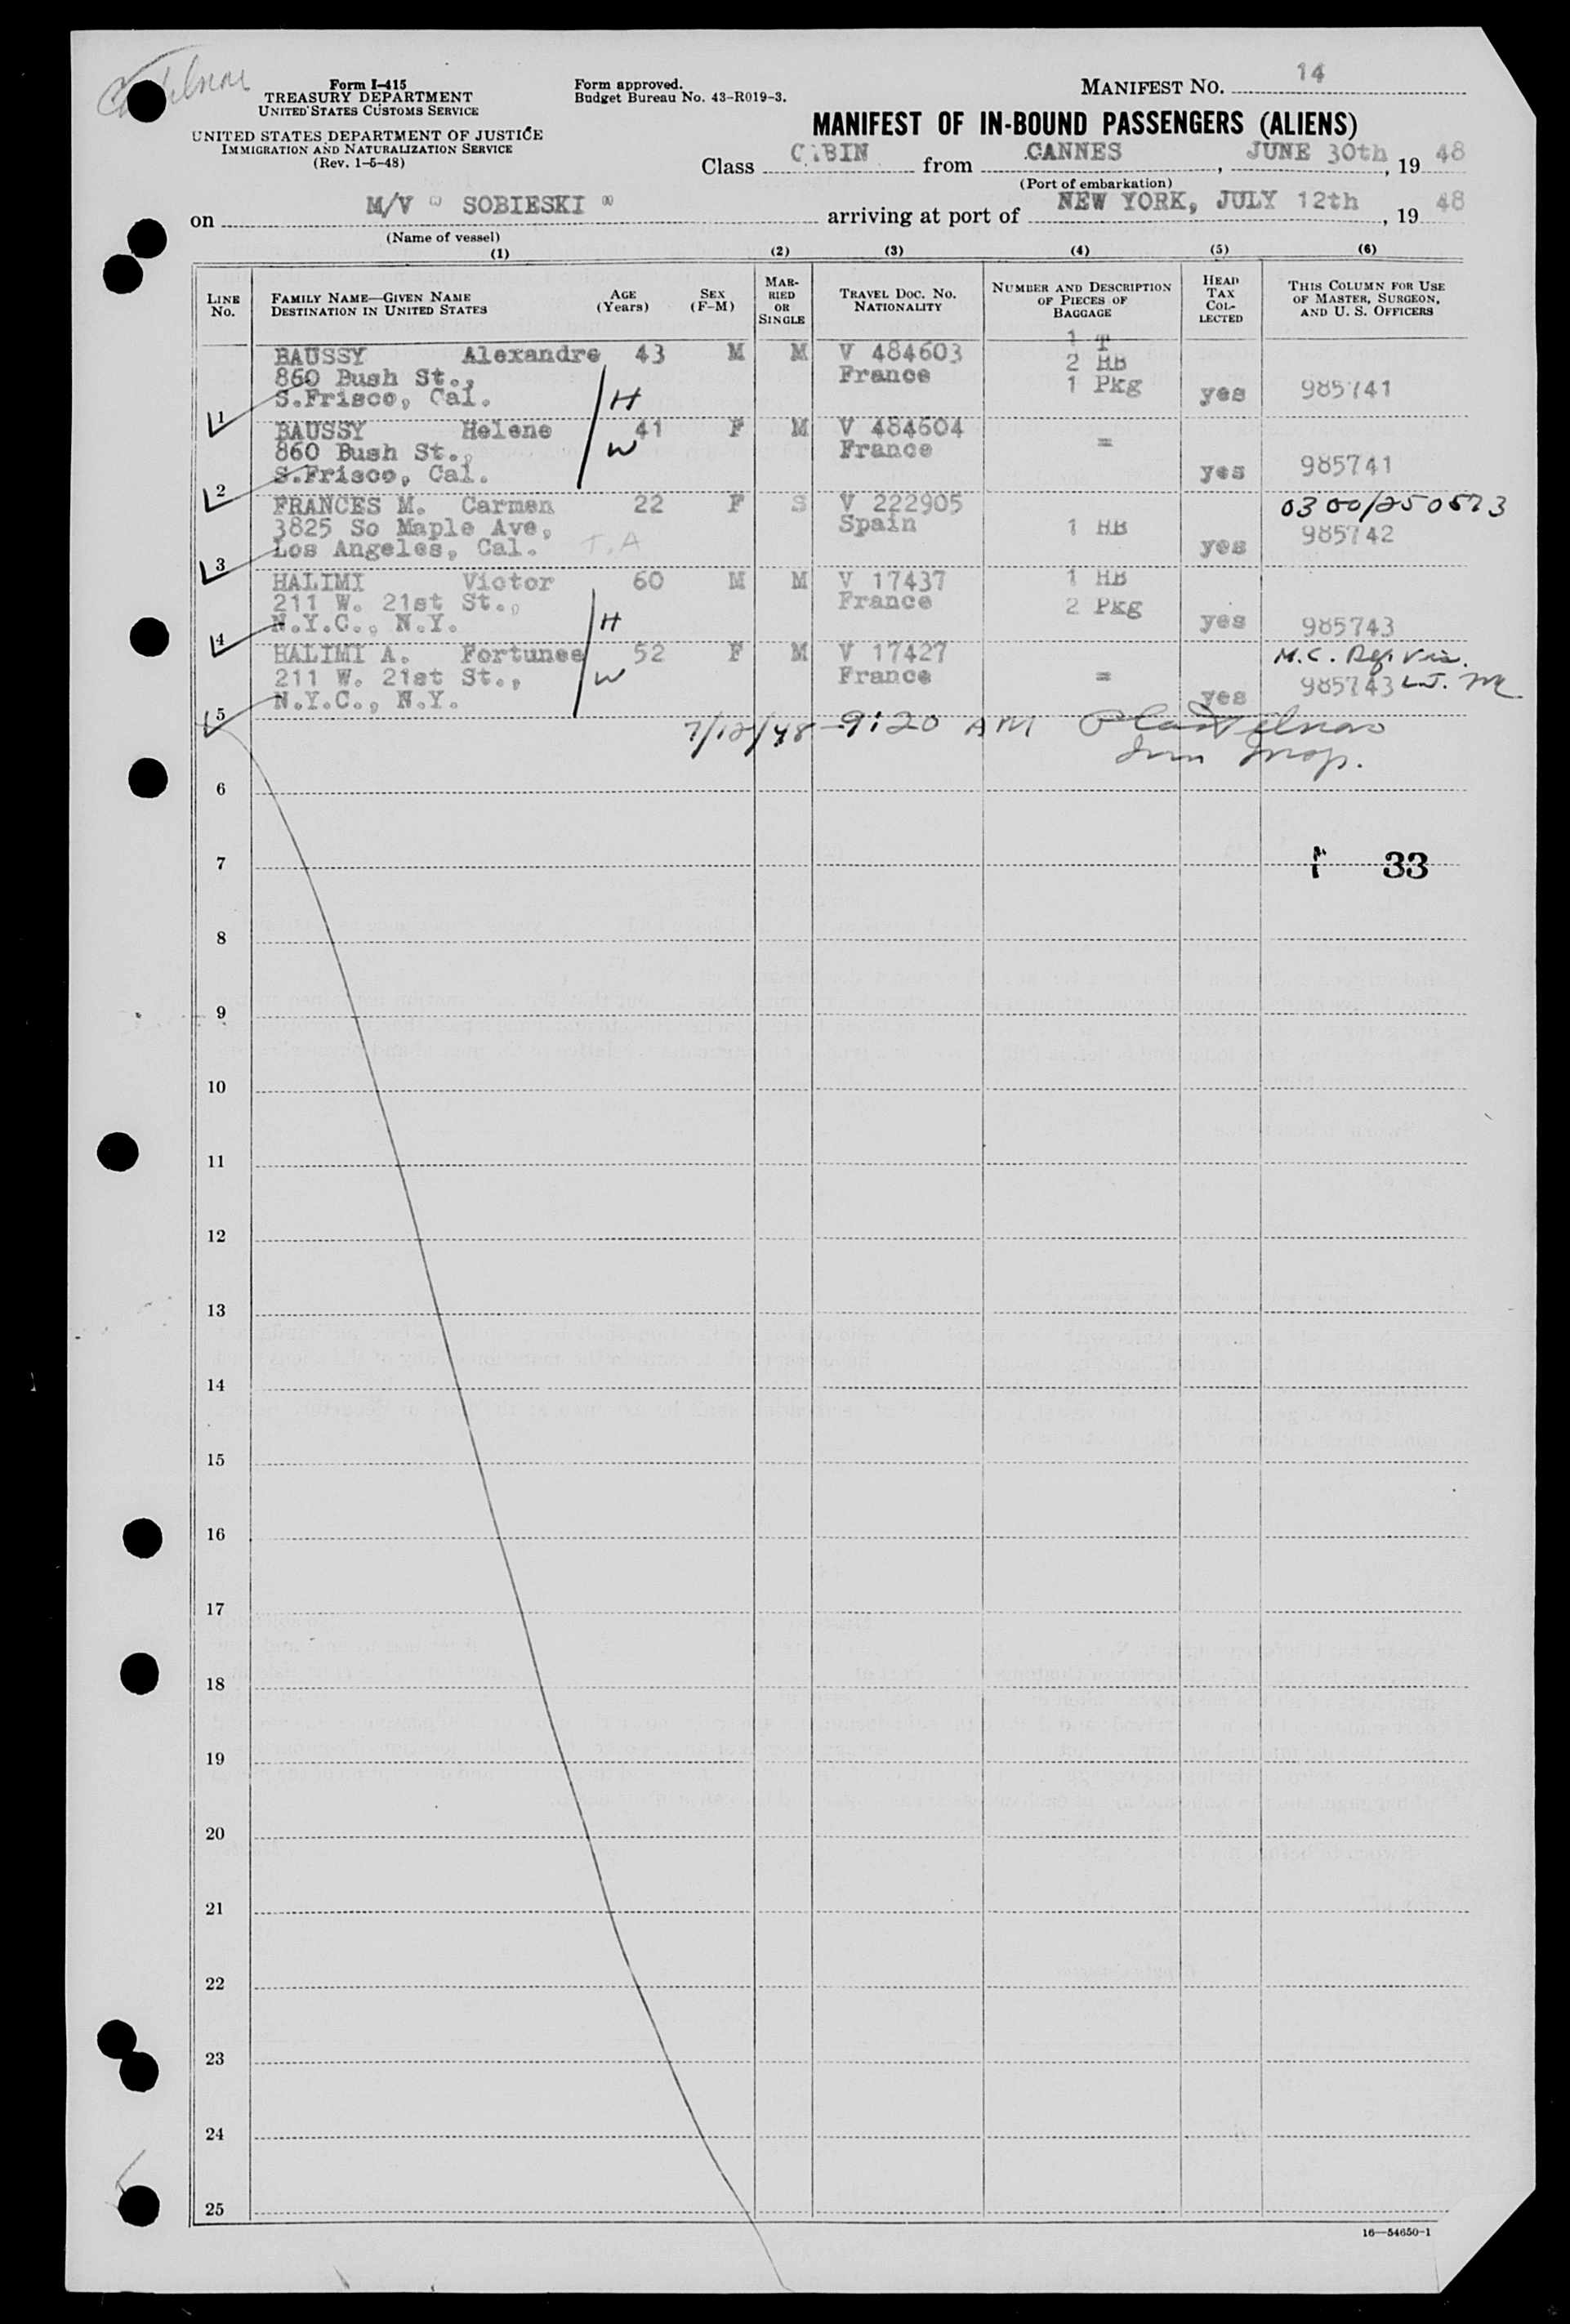 Form I-415
TREASURY DEPARTMENT
UNITED STATES CUSTOMS SERVICE
UNITED STATES DEPARTMENT OF JUSTICE
IMMIGRATION AND NATURALIZATION SERVICE
(Rev. 1-5-48)
Form approved.
Budget Bureau No. 43-R019-3.
MANIFEST NO. 14
MANIFEST OF IN-BOUND PASSENGERS (ALIENS)
Class CABIN from CANNES, JUNE 30th, 19 48
(Port of embarkation)
on M/V " SOBIESKI " arriving at port of NEW YORK, JULY 12th, 19 48
(Name of vessel)
(1) (2) (3) (4) (5) (6)
LINE NO.
FAMILY NAME—GIVEN NAME
DESTINATION IN UNITED STATES
AGE (Years)
SEX (F-M)
MARRIED OR SINGLE
TRAVEL DOC. NO.
NATIONALITY
NUMBER AND DESCRIPTION OF PIECES OF BAGGAGE
HEAD TAX COLLECTED
THIS COLUMN FOR USE OF MASTER, SURGEON, AND U. S. OFFICERS
1 T
BAUSSY Alexandre 43 M M V 484603 2 HB
860 Bush St., France 1 Pkg
1 S.Frisco, Cal. H yes 985741
BAUSSY Helene 41 F M V 484604 =
860 Bush St., W France
2 S.Frisco, Cal. yes 985741
FRANCES M. Carmen 22 F S V 222905 0300/250573
3825 So Maple Ave, Spain 1 HB 985742
3 Los Angeles, Cal. T.A yes
HALIMI Victor 60 M M V 17437 1 HB
211 W. 21st St., France 2 Pkg
4 N.Y.C., N.Y. H yes 985743
HALIMI A. Fortunee 52 F M V 17427 M.C.
211 W. 21st St., W France = 985743
5 N.Y.C., N.Y. yes
7/12/48 - 9:20 AM
Imm Insp.
6
7 33
8
9
10
11
12
13
14
15
16
17
18
19
20
21
22
23
24
25
16—54650-1